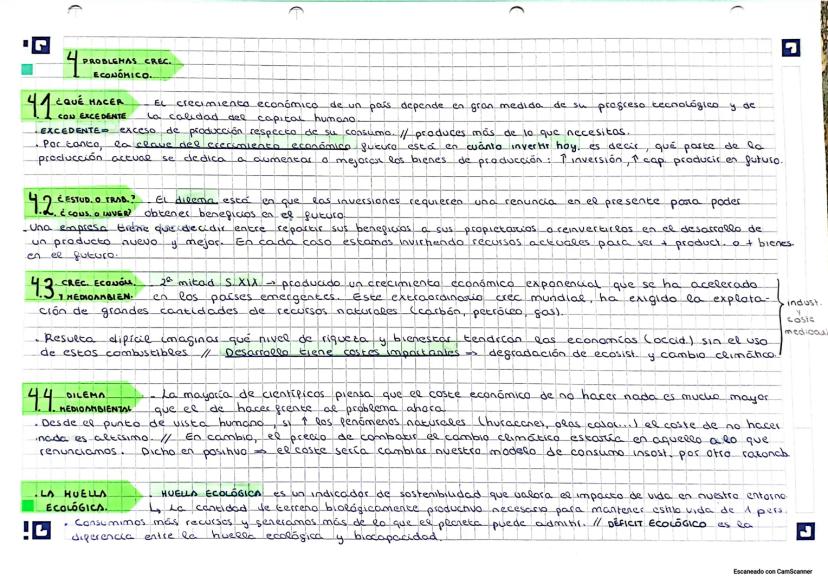 4 PROBLEMAS CREC.
ECONÓMICO.
4.1 ¿QUÉ HACER CON EXCEDENTE
- El crecimiento económico de un país depende en gran medida de su progreso tecnológico y de
la calidad del capital humano.
· EXCEDENTE ⇒ exceso de producción respecto de su consumo. // produces más de lo que necesitas.
· Por tanto, la clave del crecimiento económico futuro está en cuánto invertir hoy, es decir, qué parte de la
producción actual se dedica a aumentar o mejorar los bienes de producción: ↑ inversión, ↑ cap. producir en futuro.
4.2 ¿ESTUD. O TRAB.? ¿CONS. O INVER?
- El dilema está en que las inversiones requieren una renuncia en el presente para poder
obtener beneficios en el futuro.
. Una empresa tiene que decidir entre repartir sus beneficios a sus propietarios o reinvertirlos en el desarrollo de
un producto nuevo y mejor. En cada caso estamos invirtiendo recursos actuales para ser + product. o + bienes
en el futuro.
4.3 CREC. ECONÓM. Y MEDIOAMBIEN.
- 2ª mitad S. XIX → producido un crecimiento económico exponencial que se ha acelerado
en los países emergentes. Este extraordinario crec mundial, ha exigido la explota-
ción de grandes cantidades de recursos naturales (carbón, petróleo, gas).
· Resulta difícil imaginar qué nivel de riqueza y bienestar tendrían las economías (occid.) sin el uso
de estos combustibles // Desarrollo tiene costes importantes ⇒ degradación de ecosist. y cambio climático.
indust.
y
coste
medioau
4.4 DILEMA MEDIOAMBIENTAL
- La mayoría de científicos piensa que el coste económico de no hacer nada es mucho mayor
que el de hacer frente al problema ahora.
· Desde el punto de vista humano, si ↑ los fenómenos naturales (huracanes, olas calor...) el coste de no hacer
nada es altísimo. // En cambio, el precio de combatir el cambio climático estaría en aquello a lo que
renunciamos. Dicho en positivo ⇒ el coste sería cambiar nuestro modelo de consumo insost. por otro razonab
. LA HUELLA ECOLÓGICA.
· HUELLA ECOLÓGICA es un indicador de sostenibilidad que valora el impacto de vida en nuestro entorno
↳ La cantidad de terreno biológicamente productivo necesario para mantener estilo vida de 1 pers.
· Consumimos más recursos y generamos más de lo que el planeta puede admitir. // DÉFICIT ECOLÓGICO es la
diferencia entre la huella ecológica y biocapacidad.
Escaneado con CamScanner